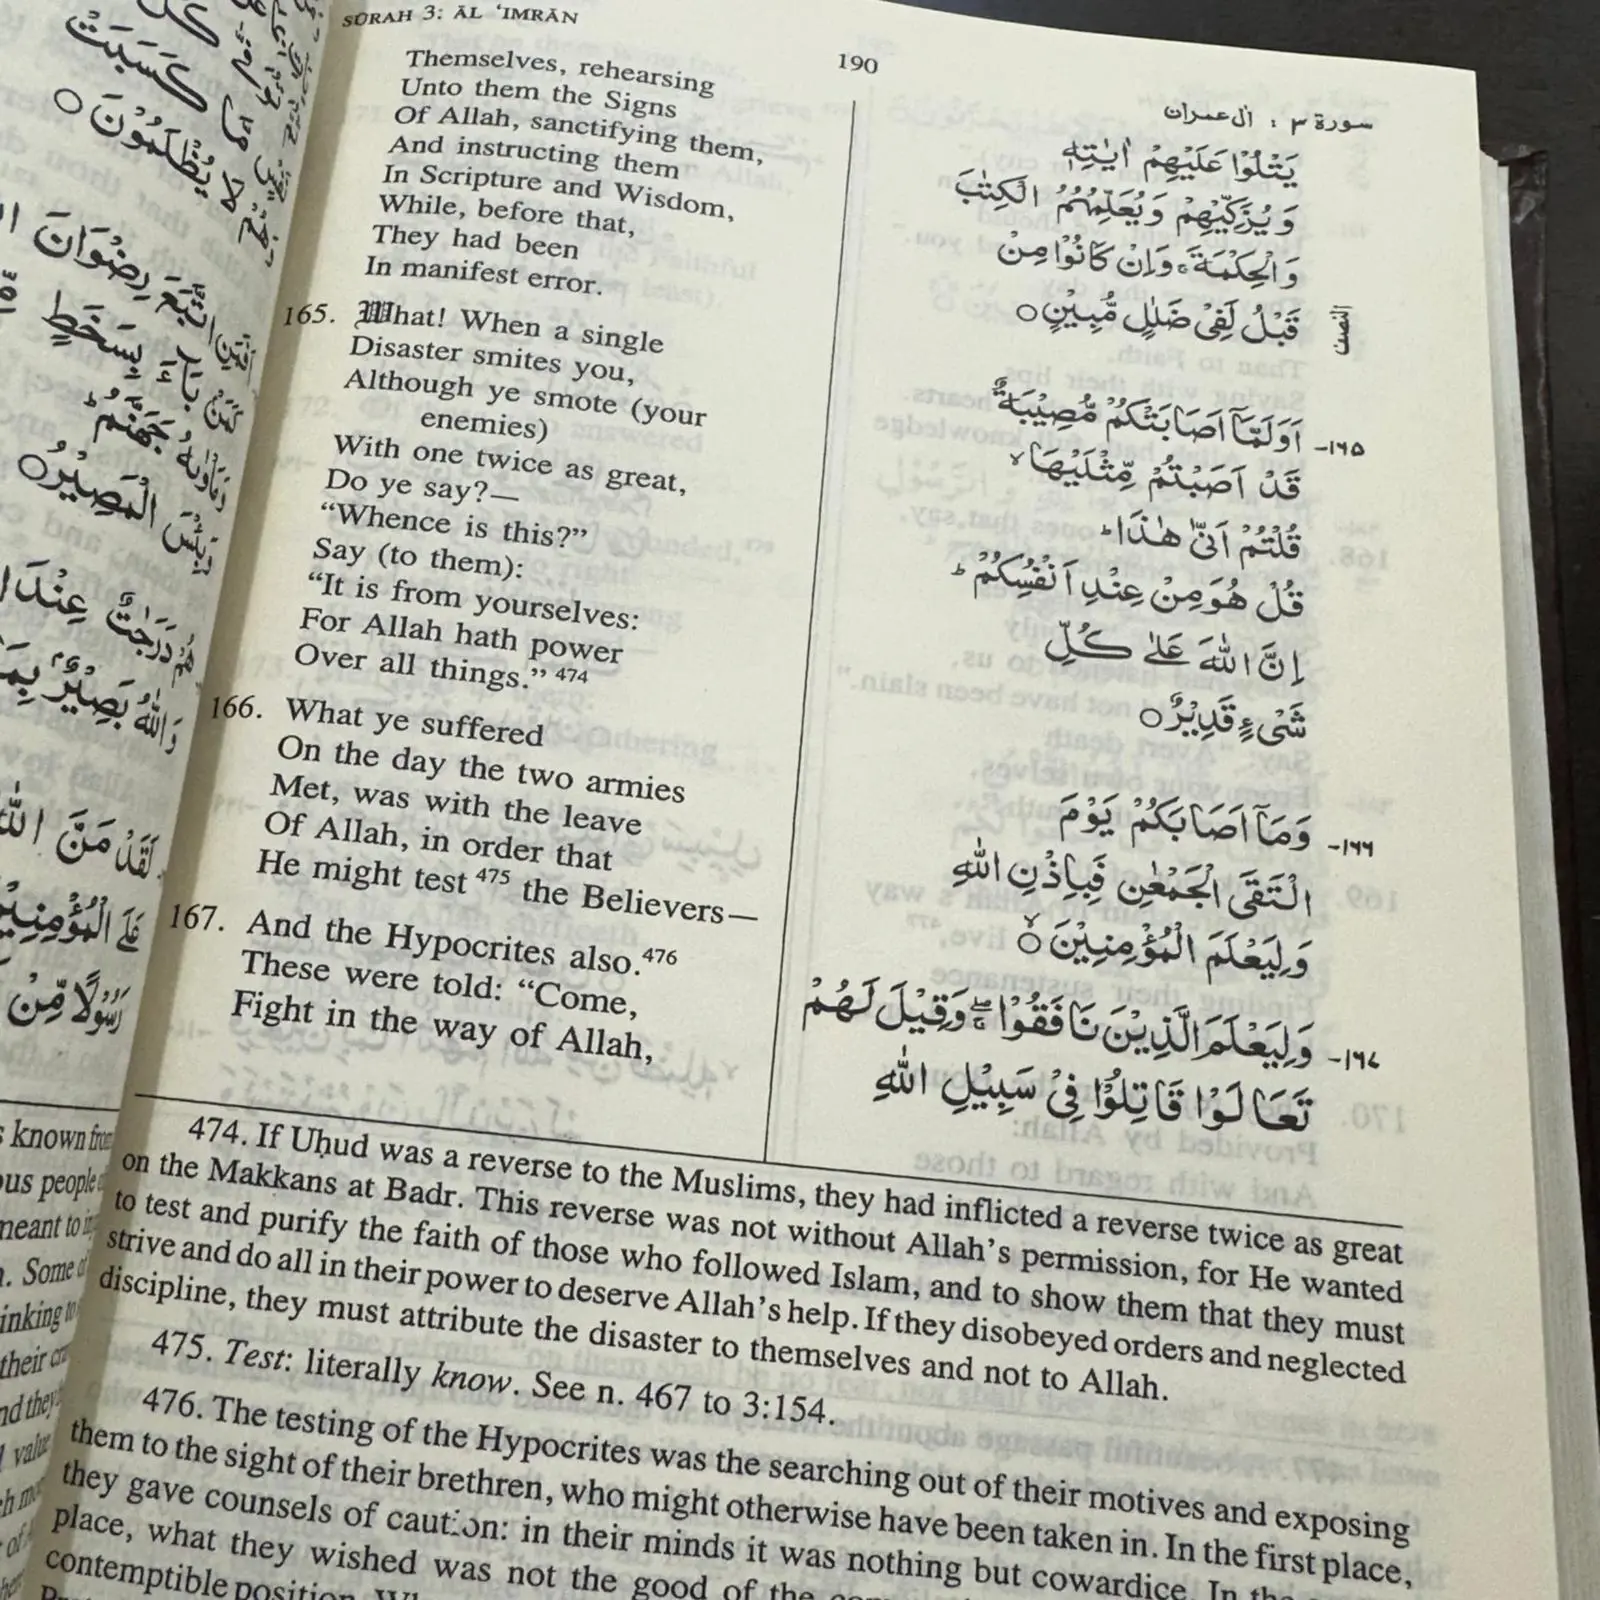 SŪRAH 3: ĀL 'IMRĀN
190
Themselves, rehearsing
Unto them the Signs
Of Allah, sanctifying them,
And instructing them
In Scripture and Wisdom,
While, before that,
They had been
In manifest error.
165. What! When a single
Disaster smites you,
Although ye smote (your
enemies)
With one twice as great,
Do ye say?—
“Whence is this?”
Say (to them):
“It is from yourselves:
For Allah hath power
Over all things.” 474
166. What ye suffered
On the day the two armies
Met, was with the leave
Of Allah, in order that
He might test 475 the Believers—
167. And the Hypocrites also.476
These were told: “Come,
Fight in the way of Allah,
سورة ٣ : اٰل عمران
يَتْلُوْا عَلَيْهِمْ اٰيٰتِهٖ
وَيُزَكِّيْهِمْ وَيُعَلِّمُهُمُ الْكِتٰبَ
وَالْحِكْمَةَ ۚ وَاِنْ كَانُوْا مِنْ
قَبْلُ لَفِيْ ضَلٰلٍ مُّبِيْنٍ ○
النصف
١٦٥- اَوَلَمَّآ اَصَابَتْكُمْ مُّصِيْبَةٌ
قَدْ اَصَبْتُمْ مِّثْلَيْهَا ۙ
قُلْتُمْ اَنّٰى هٰذَا ؕ
قُلْ هُوَ مِنْ عِنْدِ اَنْفُسِكُمْ ؕ
اِنَّ اللّٰهَ عَلٰى كُلِّ
شَيْءٍ قَدِيْرٌ ○
١٦٦- وَمَآ اَصَابَكُمْ يَوْمَ
الْتَقَى الْجَمْعٰنِ فَبِاِذْنِ اللّٰهِ
وَلِيَعْلَمَ الْمُؤْمِنِيْنَ ○ۙ
١٦٧- وَلِيَعْلَمَ الَّذِيْنَ نَافَقُوْا ۖۚ وَقِيْلَ لَهُمْ
تَعَالَوْا قَاتِلُوْا فِيْ سَبِيْلِ اللّٰهِ
474. If Uḥud was a reverse to the Muslims, they had inflicted a reverse twice as great
on the Makkans at Badr. This reverse was not without Allah’s permission, for He wanted
to test and purify the faith of those who followed Islam, and to show them that they must
strive and do all in their power to deserve Allah’s help. If they disobeyed orders and neglected
discipline, they must attribute the disaster to themselves and not to Allah.
475. Test: literally know. See n. 467 to 3:154.
476. The testing of the Hypocrites was the searching out of their motives and exposing
them to the sight of their brethren, who might otherwise have been taken in. In the first place,
they gave counsels of caution: in their minds it was nothing but cowardice. In the
place, what they wished was not the good of the
contemptible position.
مَّا كَسَبَتْ
لَا يُظْلَمُوْنَ ○
اتَّبَعَ رِضْوَانَ
بَآءَ بِسَخَطٍ
جَهَنَّمُ ؕ
وَبِئْسَ الْمَصِيْرُ ○
هُمْ دَرَجٰتٌ عِنْدَ
وَاللّٰهُ بَصِيْرٌۢ
لَقَدْ مَنَّ اللّٰهُ
عَلَى الْمُؤْمِنِيْنَ
رَسُوْلًا مِّنْ
known from
people
meant to
Some
their
value